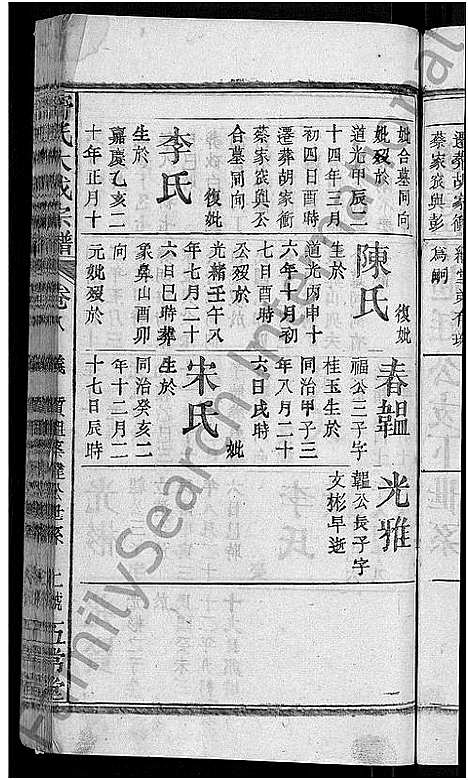 妣合墓同向
妣歿於
道光甲辰二
十四年三月
初四日酉時
遷葬胡家衝
蔡家崁與公
合墓同向
李氏 復妣
生於
嘉慶乙亥二
十年正月十
陳氏 復妣
生於
道光丙申十
六年十月初
公歿於
光緒壬午八
年七月二十
六日巳時葬
象鼻山酉卯
向
元妣歿於
春韞
福公三子字
桂玉生於
同治甲子三
年八月二十
六日戌時
宋氏 妣
生於
同治癸亥二
年十二月二
十七日辰時
光雅
韞公長子字
文彬早逝
氏大成宗譜 卷八
遷葬胡家衝
蔡家崁與彭
為嗣
FamilySearch International